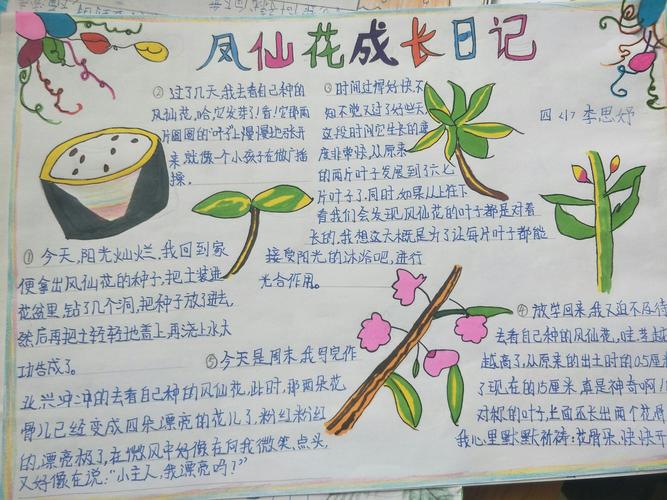 凤仙花成长日记
四小 李思妤
① 今天,阳光灿烂,我回到家
便拿出凤仙花的种子,把土装进
花盆里,钻了几个洞,把种子放了进去,
然后再把土轻轻地盖上,再浇上水大
功告成了。
② 过了几天,我去看自己种的
凤仙花,哈,它发芽了!看!它那两
片圆圆的叶子慢慢地张开
来,就像一个小孩子在做广播
操。
③ 时间过得好快,不
知不觉又过了好些天,
这段时间它生长的速
度非常快,从原来
的两片叶子发展到了六七
片叶子了,同时,如果从上往下
看我们会发现,凤仙花的叶子都是对着
长的,我想这大概是为了让每片叶子都能
接受阳光的沐浴吧,进行
光合作用。
④ 放学回来,我又迫不及待
去看自己种的凤仙花,哇,
越高了,从原来的出土时的0.5厘
了现在的15厘米,真是神奇啊!
对称的叶子上面还长出两个花
我心里默默祈祷:花骨朵,快快开
⑤ 今天是周末,我写完作
业,兴冲冲的去看自己种的凤仙花,此时,那两朵花
骨儿已经变成四朵漂亮的花儿了,粉红粉红
的,漂亮极了,在微风中好像在向我微笑,点头,
又好像在说:“小主人,我漂亮吗?”